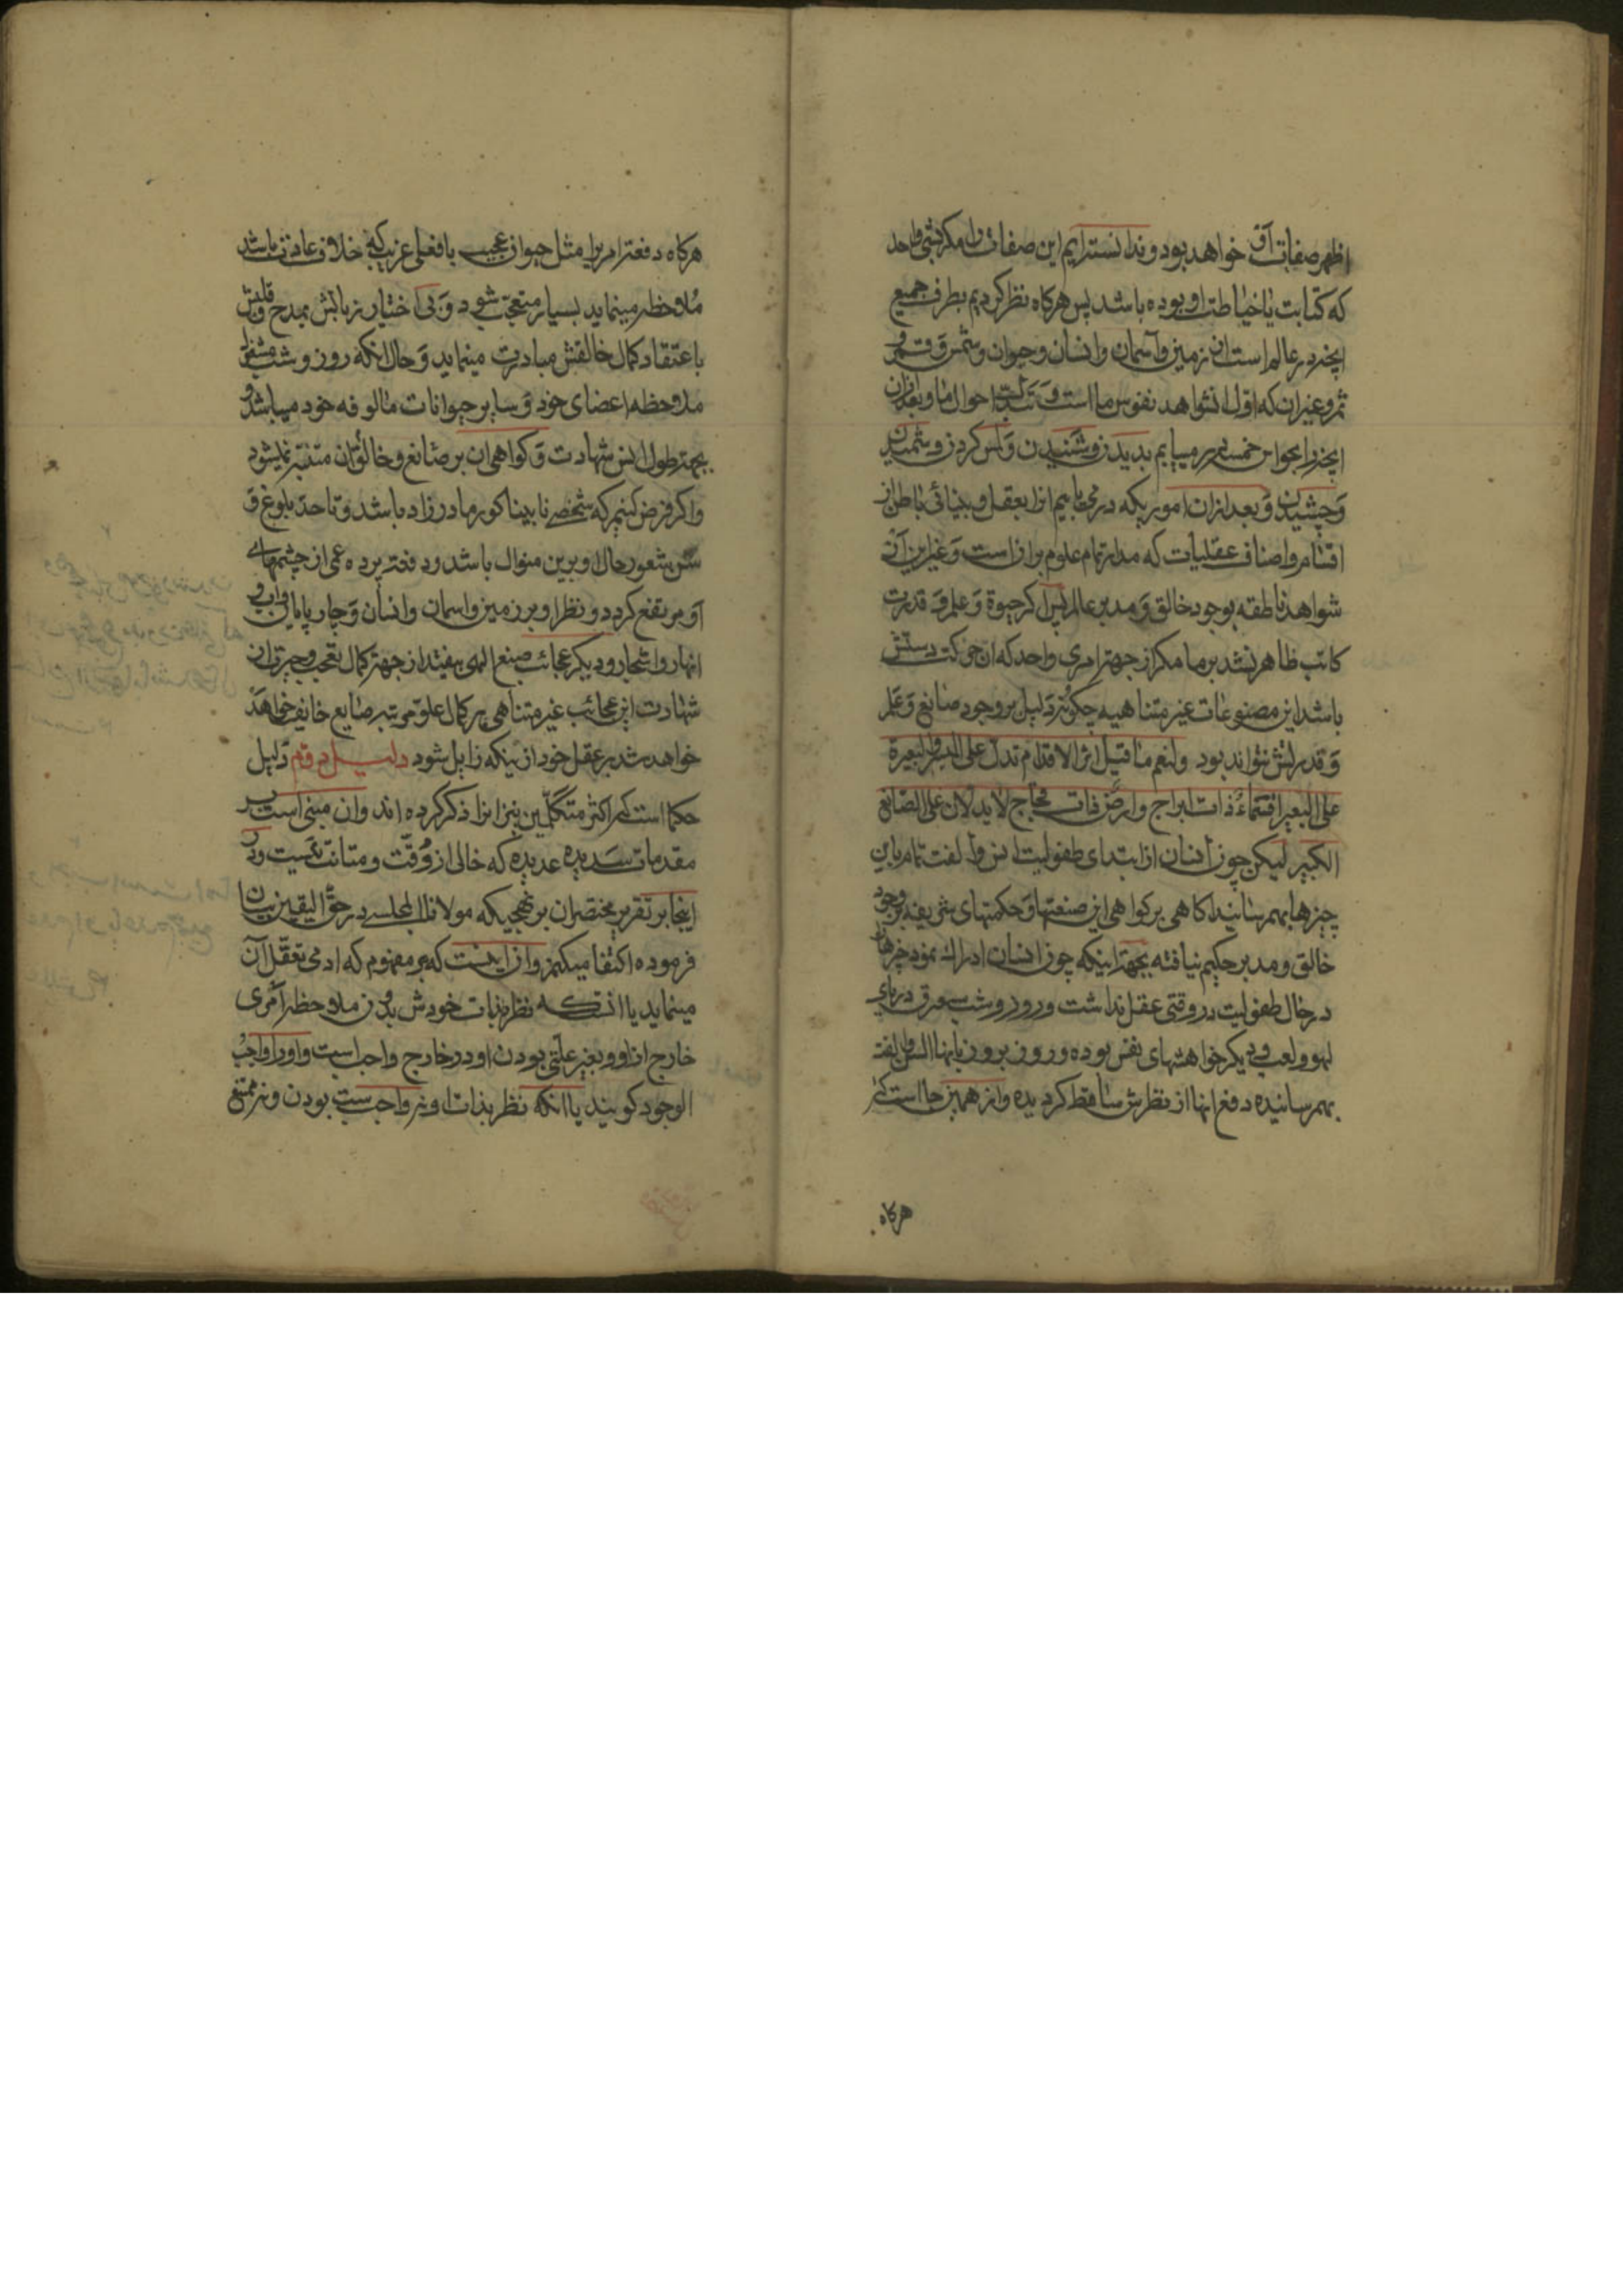 اظهر صفات آن خواهد بود و ندانسته‌ایم این صفات را مکر بشئ واحد
که کتابت یا خیاطت او بوده باشد پس هرکاه نظر کردیم بطرف جمیع
انچه در عالم است از زمین و آسمان و انسان و حیوان و شمس و قمر و
ثمر و غیر ان که اول شواهد نفوس ما است و تبدلات احوال ما و بعد ازان
انچه را بحواس خمسه در میبابیم بدیدن و شنیدن و لمس کردن و شمیدن
و چشیدن و بعد ازان اموریکه در می‌یابیم انرا بعقل و بینائی باطن از
اقسام و اصناف عقلیات که مدار تمام علوم بران است و غیر این از
شواهد ناطقه بوجود خالق و مدبر عالم پس اکر حیوة و علم و قدرت
کاتب ظاهر نشد بر ما مکر از جهتر امری واحد که ان حرکت دستش
باشد این مصنوعات غیر متناهیه چکونه دلیل بر وجود صانع و علم
و قدرتش نتواند بود ولنعم ما قیل اثر الاقدام تدل علی المسیر والبعرة
علی البعیر افسماء ذات ابراج وارض ذات فجاج لا یدلان علی الصانع
الکبیر لیکن چون انسان از ابتدای طفولیت انس و الفت تمام باین
چیزها بهم رسانید اکاهی بر کواهی این صنعتها و حکمتهای شریفه بر وجود
خالق و مدبر حکیم نیافته بجهتر اینکه چون انسان ادراک نمود چیزها
در حال طفولیت در وقتی عقل نداشت و روز و شب غرق دریای
لهو و لعب و دیکر خواهشهای نفس بوده و روز بروز بانها انس و الفت
بهم رسانیده دفع انها از نظرش ساقط کردیده و از همین جا است که
هرکاه
هرکاه دفعتر امریرا مثل حیوان عجیب یا فعلی غریب که خلاف عادت باشد
ملاحظه مینماید بسیار متعجب شود و بی اختیار زبانش بمدح و
باعتقاد کمال خالقش مبادرت مینماید و حال انکه روز و شب مشغول
ملاحظه اعضای خود و سایر حیوانات مالوفه خود میباشد و
بجهتر طول انس شهادت و کواهی ان بر صانع و خالق ان متنبه نمیشود
و اکر فرض کنیم که شخصی نابینا کور مادرزاد باشد و تا حد بلوغ و
سن شعور حال او برین منوال باشد و دفعتر پرده عمی از چشمهای
او مرتفع کردد و نظر او بر زمین و اسمان و انسان و چارپایان و
انهار و اشجار و دیکر عجائب صنع الهی بیفتد از جهتر کمال تعجب و حیرت از
شهادت این عجائب غیر متناهی بر کمال علو مرتبه صانع خائف خواهد
خواهد شد بر عقل خود از ینکه زایل شود دلیل دوم دلیل
حکما است که اکثر متکلمین نیز انرا ذکر کرده‌اند و ان مبنی است بر
مقدمات سدیده عدیده که خالی از دقت و متانت نیست و در
اینجا بر تقریر مختصر ان بر نهجیکه مولانا المجلسی در حق الیقین بیان
فرموده اکتفا میکنم و ان اینست که هر مفهوم که ادمی تعقل آن
مینماید یا انستکه نظر بذات خودش بدون ملاحظه امری
خارج از او و بغیر علتی بودن او در خارج واجب است و او را واجب
الوجود کویند یا انکه نظر بذات او نه واجب است بودن و نه ممتنع